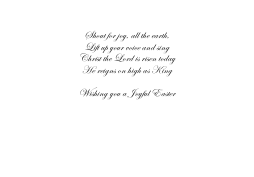 Shout for joy, all the earth,
Lift up your voice and sing
Christ the Lord is risen today
He reigns on high as King
Wishing you a Joyful Easter